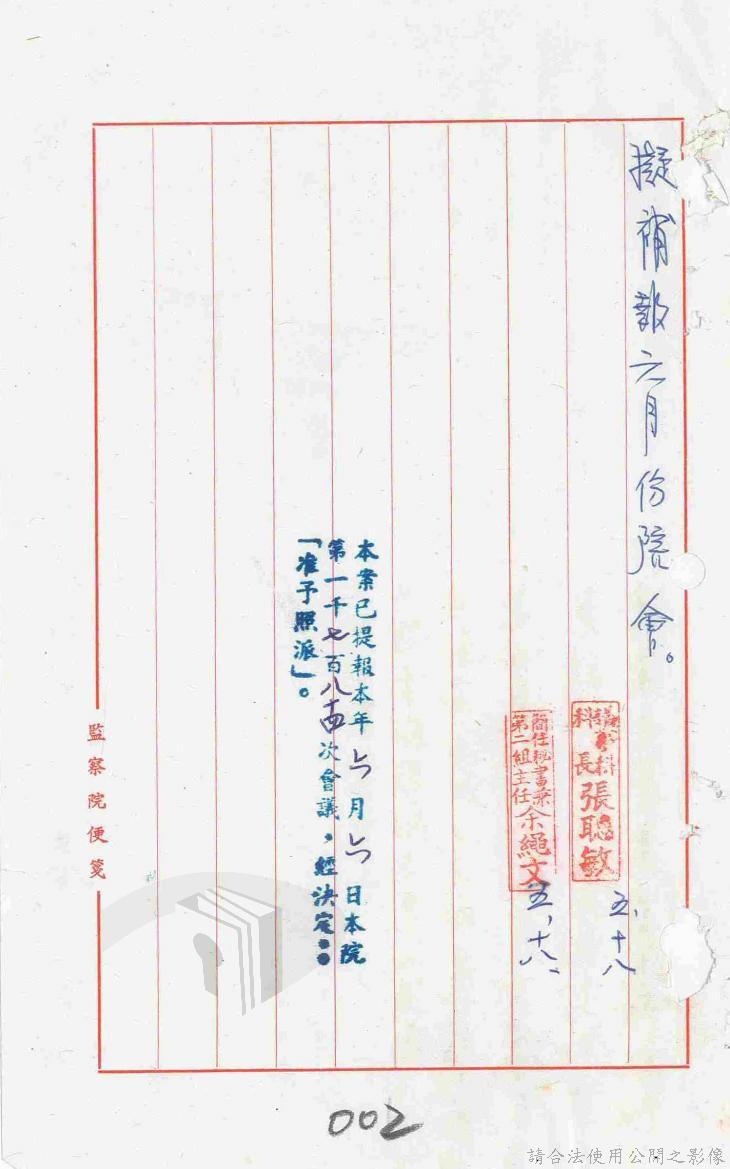 擬補報六月份院會。
議事科
科長張聰敏
五、十八
簡任秘書兼
第二組主任余繩文
五、十八、
本案已提報本年六月六日本院
第一千七百八十四次會議，經決定：
「准予照派」。
監察院便箋
002
請合法使用公開之影像